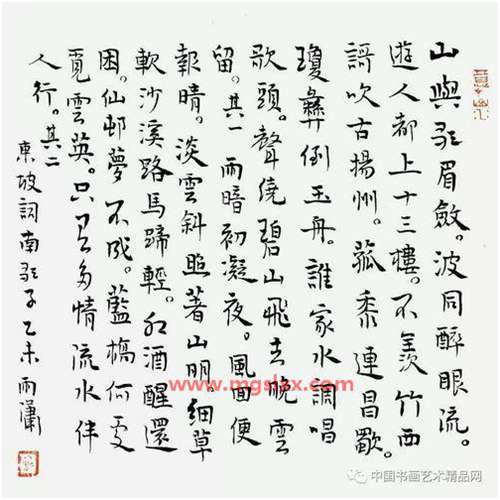 山與歌眉斂。波同醉眼流。
遊人都上十三樓。不羨竹西
謌吹古揚州。菰黍連昌歜。
瓊彝倒玉舟。誰家水調唱
歌頭。聲繞碧山飛去晚雲
留。其一 雨暗初凝夜。風囬便
報晴。淡雲斜照著山明。細草
軟沙溪路馬蹄輕。卯酒醒還
困。仙邨夢不成。藍橋何處
覓雲英。只有多情流水伴
人行。其二
東坡詞南歌子乙未雨瀟
www.mgslsx.com
中国书画艺术精品网